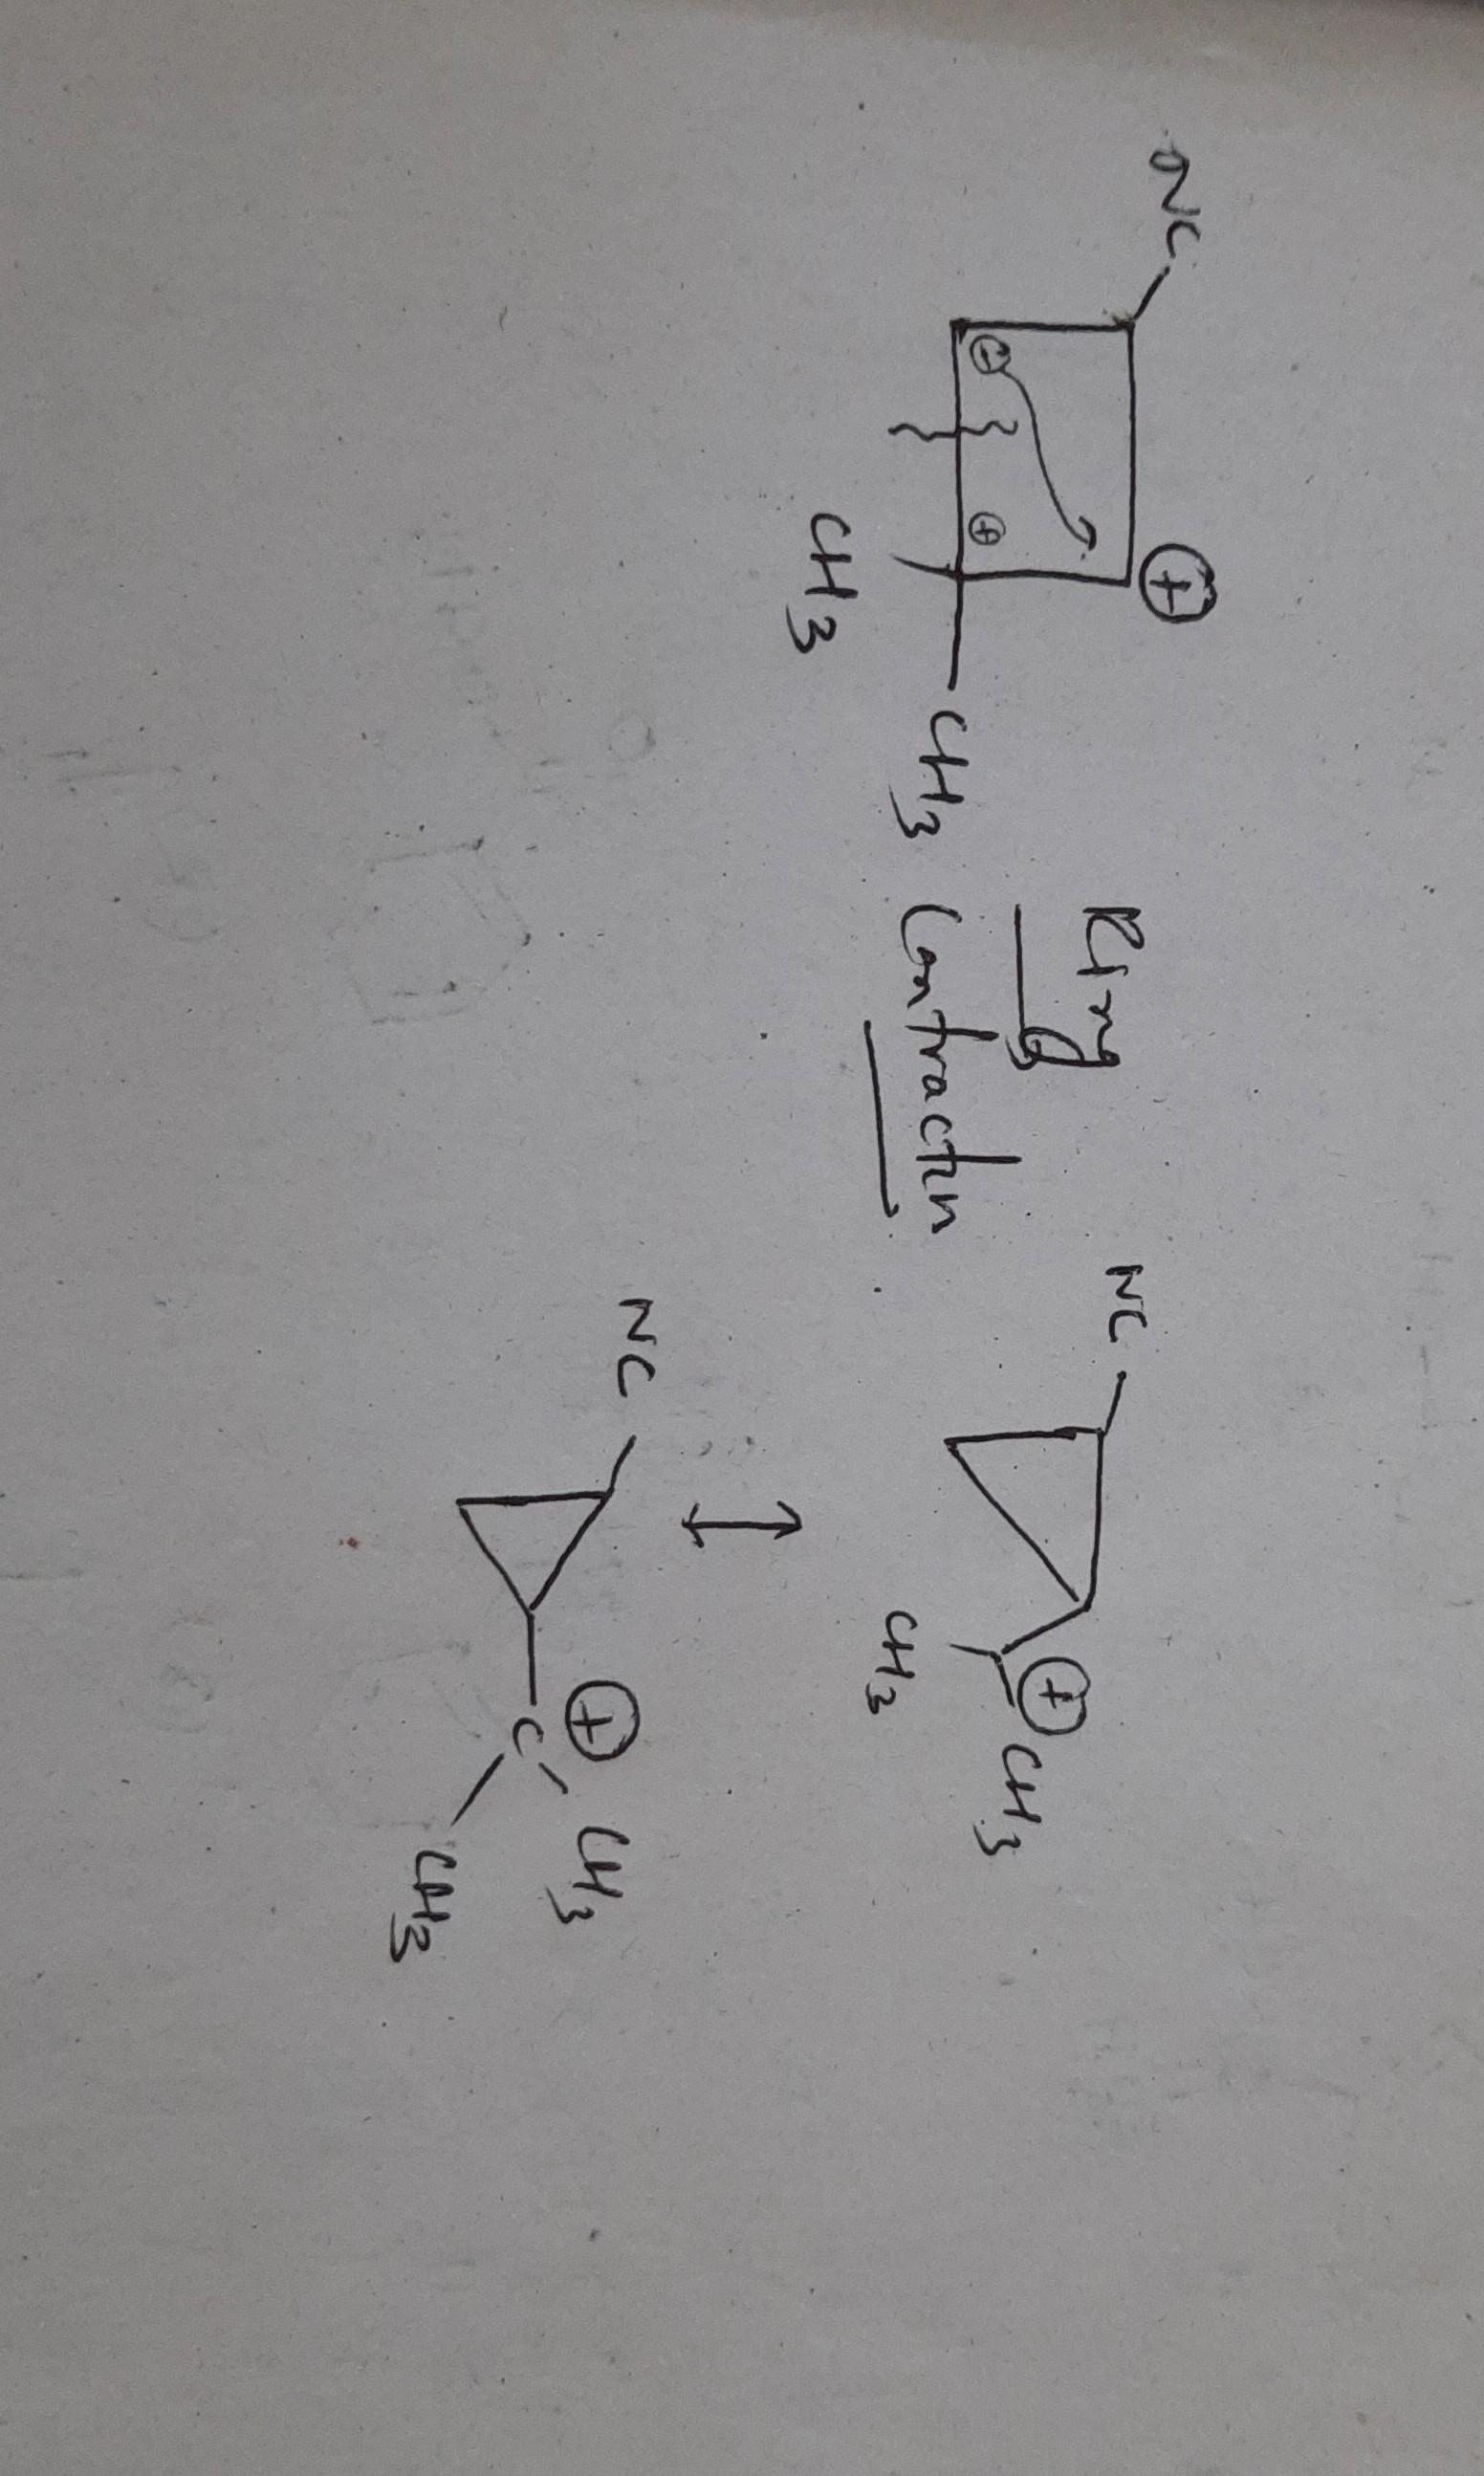 NC
⊕
⊖
⊕
CH3
CH3
Ring
Contractn
NC
⊕
CH3
CH3
NC
⊕
C
CH3
CH3